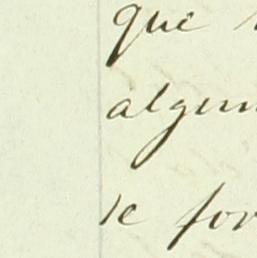 que
algum
se for